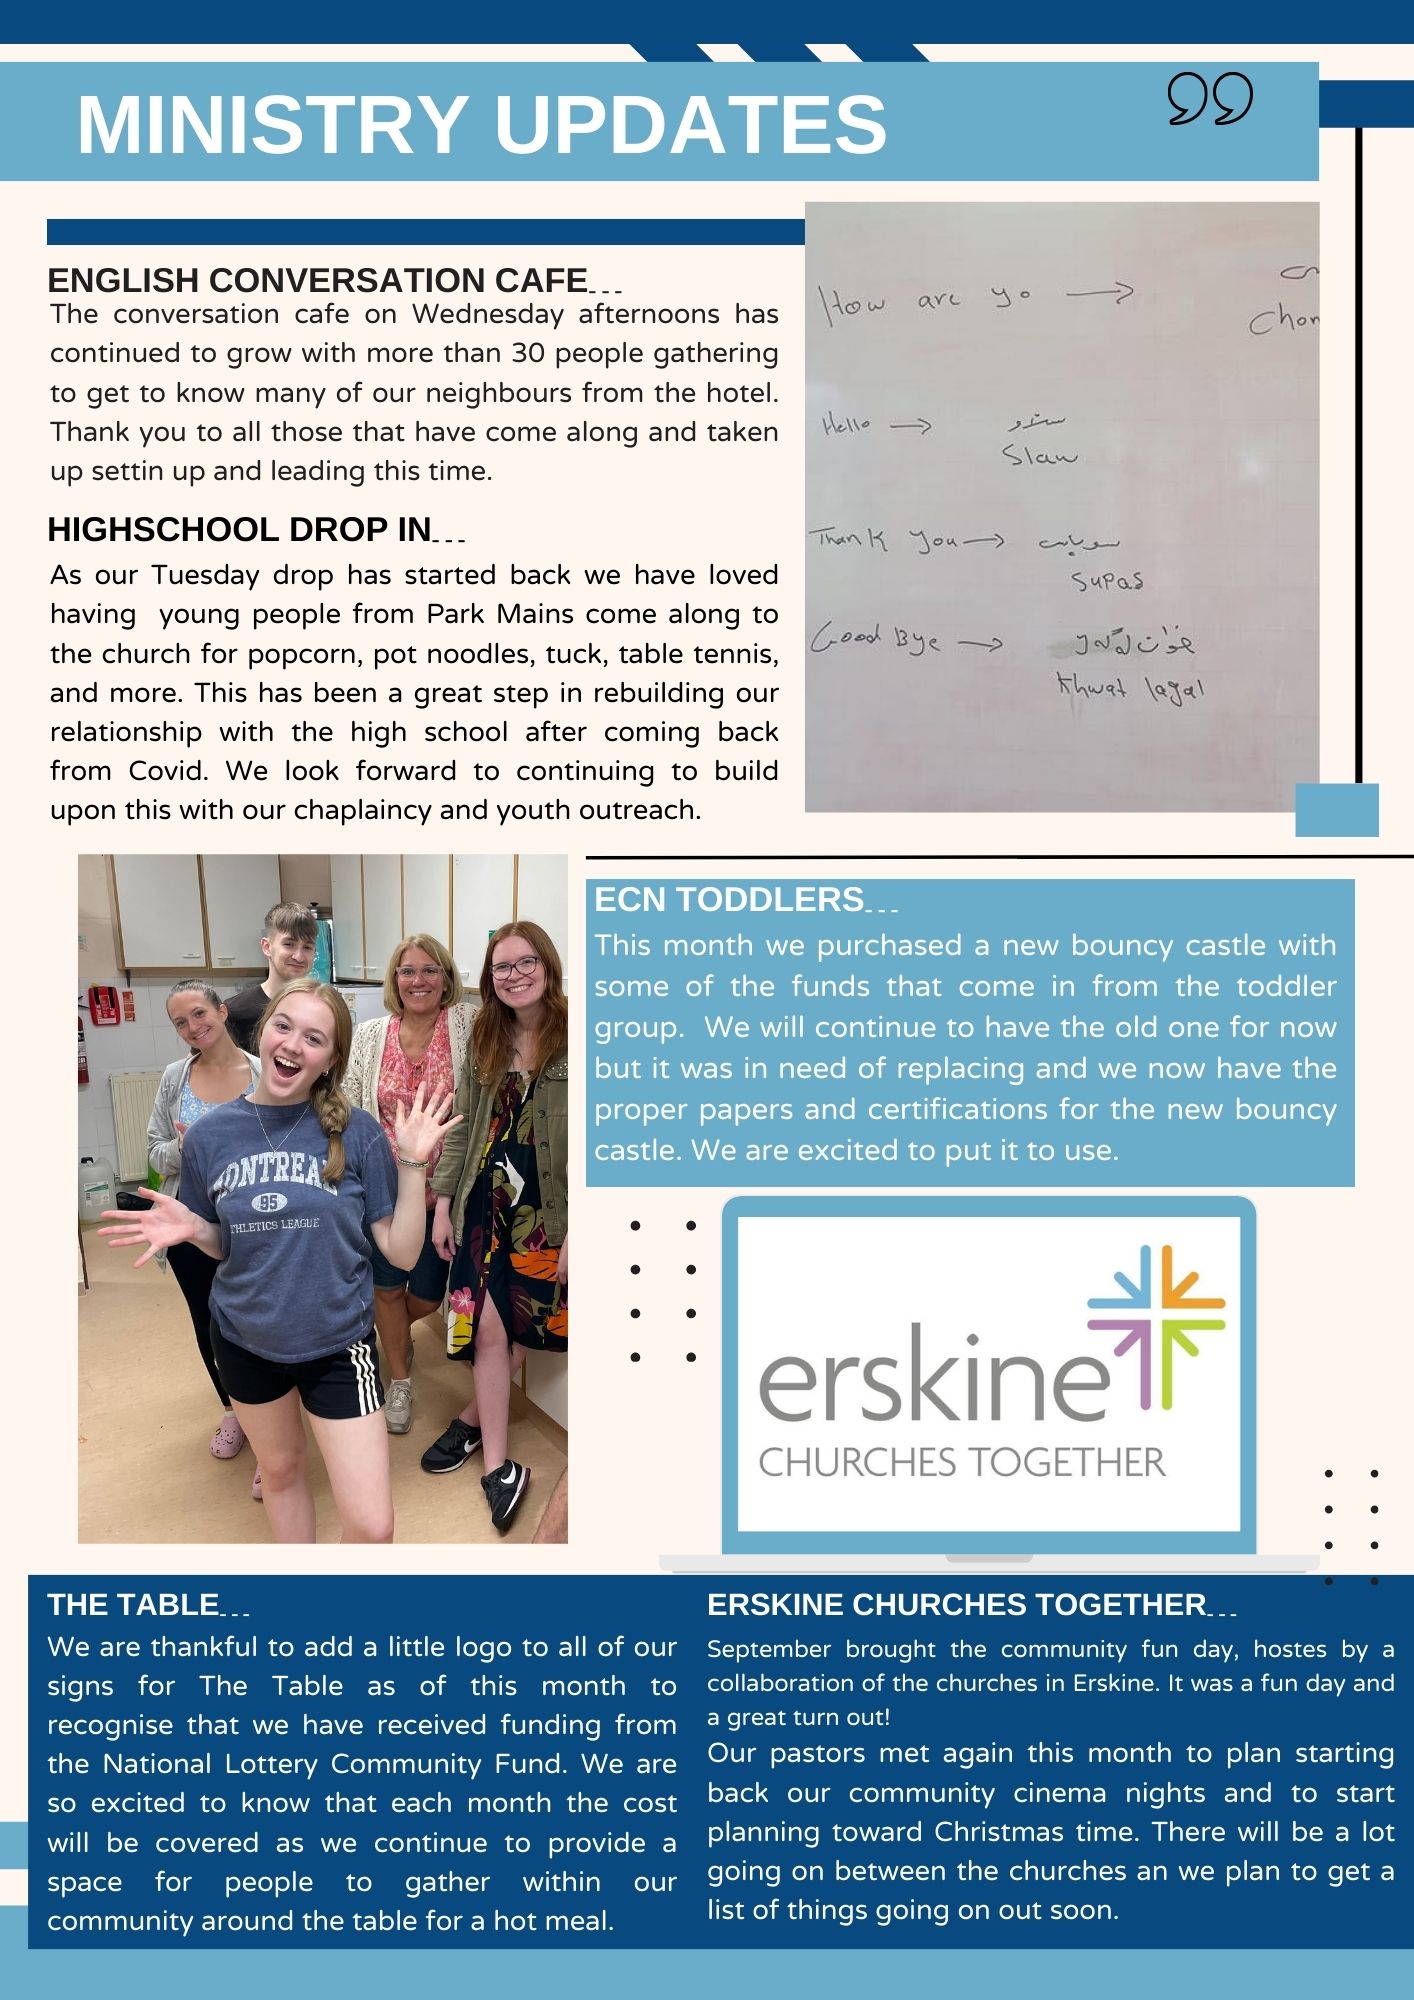 MINISTRY UPDATES
ENGLISH CONVERSATION CAFE...
The conversation cafe on Wednesday afternoons has
continued to grow with more than 30 people gathering
to get to know many of our neighbours from the hotel.
Thank you to all those that have come along and taken
up settin up and leading this time.
HIGHSCHOOL DROP IN...
As our Tuesday drop has started back we have loved
having young people from Park Mains come along to
the church for popcorn, pot noodles, tuck, table tennis,
and more. This has been a great step in rebuilding our
relationship with the high school after coming back
from Covid. We look forward to continuing to build
upon this with our chaplaincy and youth outreach.
How are yo →
Chon
Hello →
Slaw
Thank you →
Supas
Good Bye →
Khwat lagal
MONTREAL
95
ATHLETICS LEAGUE
ECN TODDLERS...
This month we purchased a new bouncy castle with
some of the funds that come in from the toddler
group. We will continue to have the old one for now
but it was in need of replacing and we now have the
proper papers and certifications for the new bouncy
castle. We are excited to put it to use.
erskine
CHURCHES TOGETHER
THE TABLE...
We are thankful to add a little logo to all of our
signs for The Table as of this month to
recognise that we have received funding from
the National Lottery Community Fund. We are
so excited to know that each month the cost
will be covered as we continue to provide a
space for people to gather within our
community around the table for a hot meal.
ERSKINE CHURCHES TOGETHER...
September brought the community fun day, hostes by a
collaboration of the churches in Erskine. It was a fun day and
a great turn out!
Our pastors met again this month to plan starting
back our community cinema nights and to start
planning toward Christmas time. There will be a lot
going on between the churches an we plan to get a
list of things going on out soon.